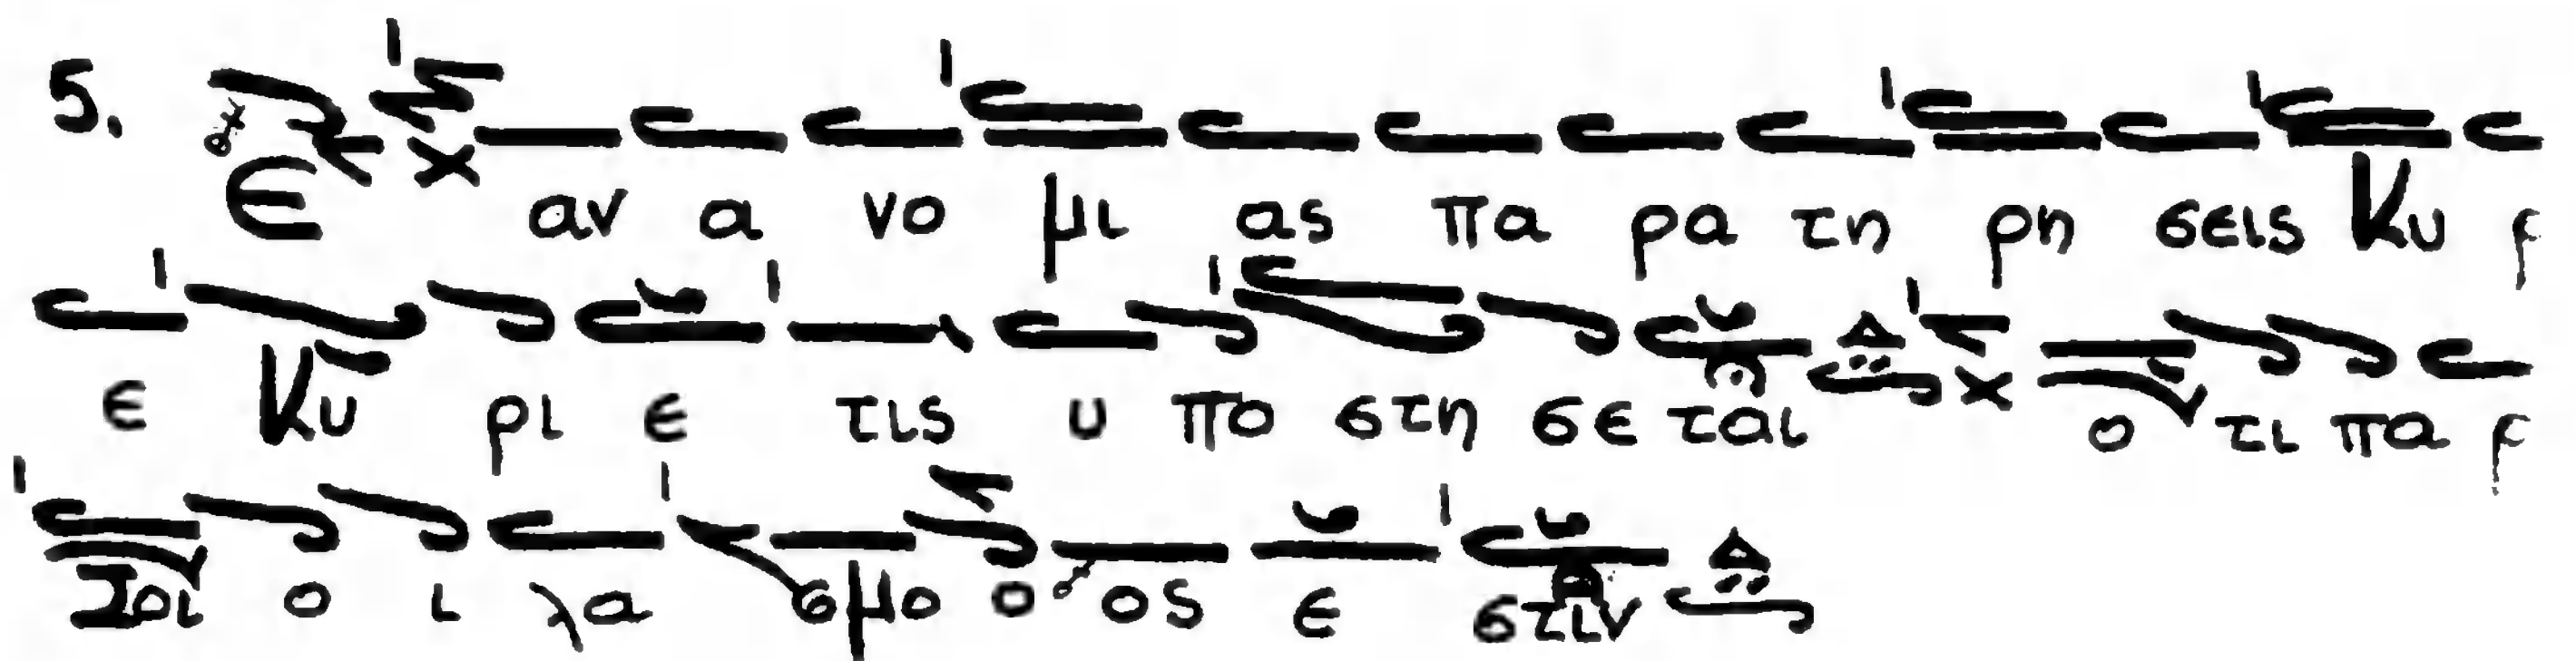 5. Ε αν α νο μι ας πα ρα τη ρη σεις Κυ ρ
ε Κυ ρι ε τις υ πο στη σε ται ο τι πα ρ
Σοι ο ι λα σμο ο ος ε στιν